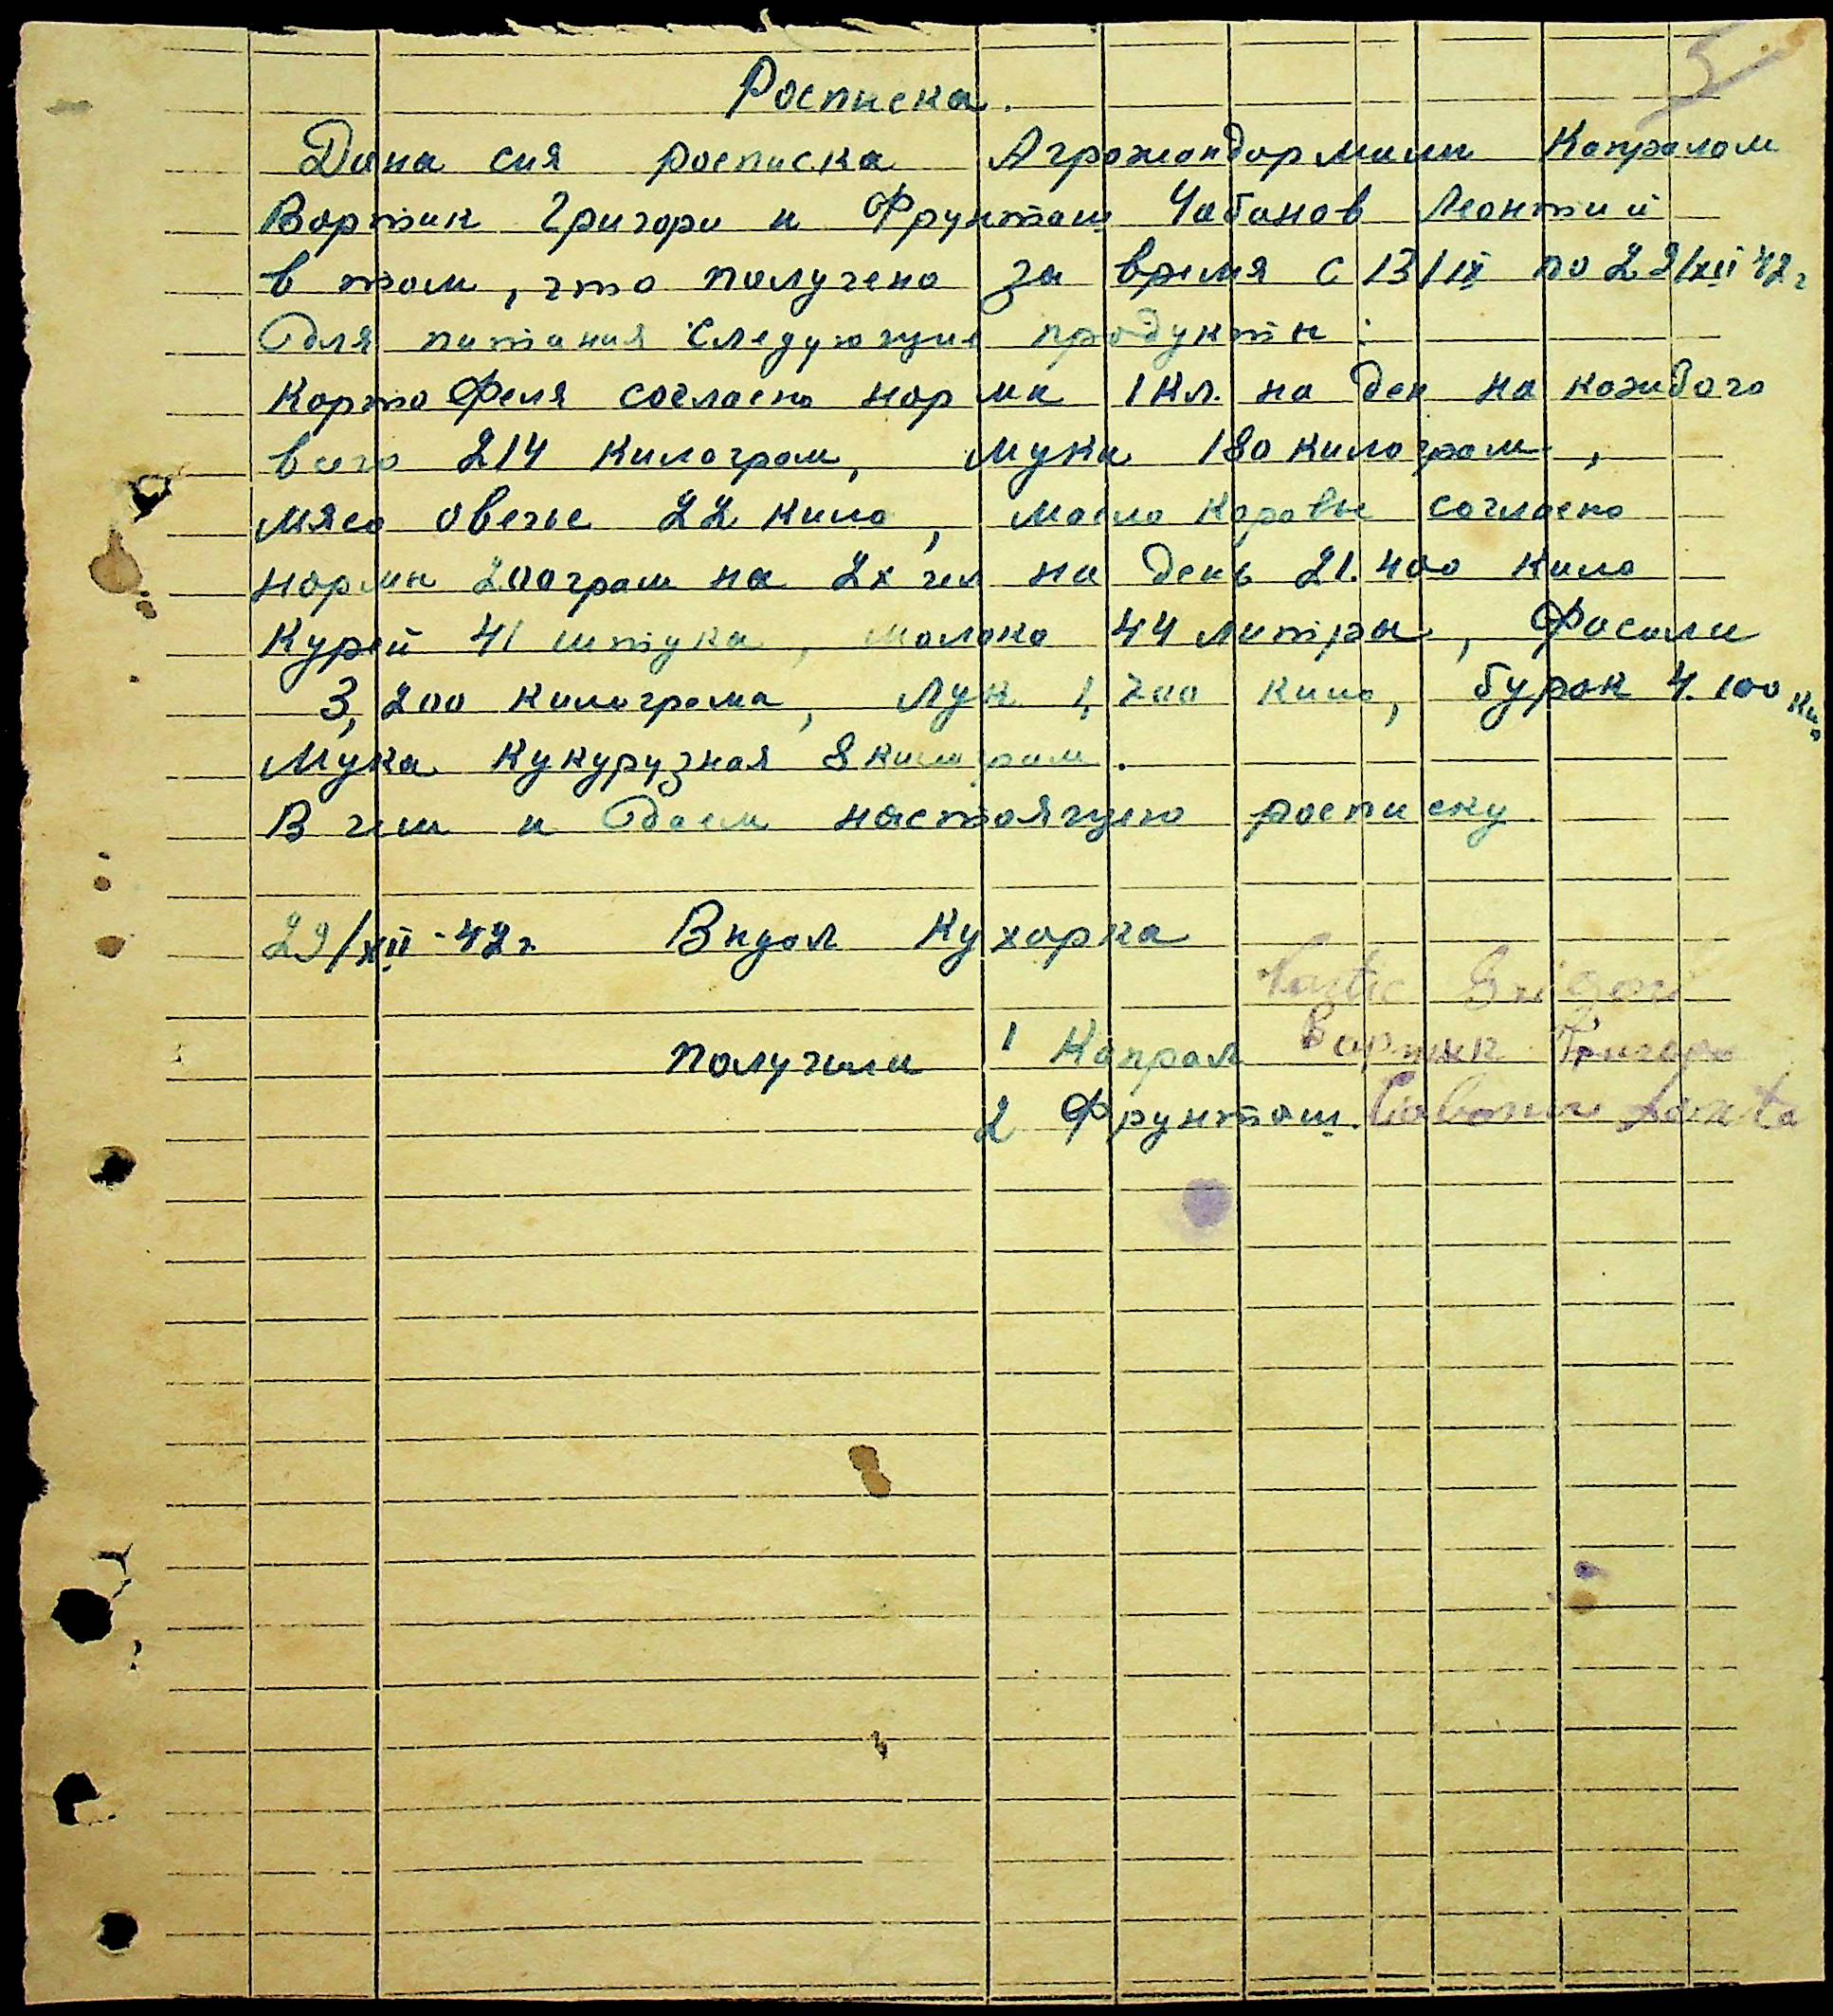 5
Росписка.
Дана сия росписка Агрожандармами Капралом
Вартик Григори и Фрунташ Чабанов Леонтий
в том, что получено за время с 13/IX по 29/XII 42 г
для питания следующие продукти:
Картофеля согласно норми 1 кл. на ден на каждого
всего 214 килограм, муки 180 килограм,
мясо овечье 22 кило, масло коровье согласно
норми 200 грам на 2х чел на день 21.400 кило
Курей 41 штука, молока 44 литра, Фасоли
3,200 килограма, Лук 1,700 кило, бурак 4.100 ки
Мука кукурузная 8 килограм.
В чем и даем настоящую росписку.
29/XII-42 г. Видал Кухарка
Vartic Grigori
получили 1 Капрал Вартик Григори
2 Фрунташ.